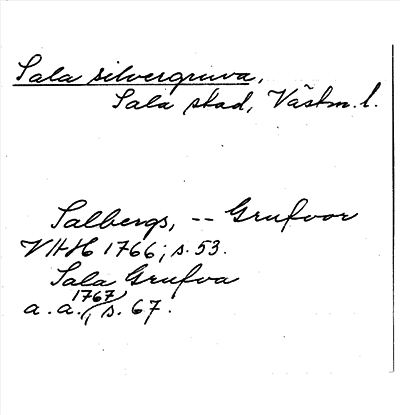 Sala silvergruva,
Sala stad, Västm. l.
Salbergs, -- Grufvor
VHH 1766; s. 53.
Sala Grufva
a. a. 1767, s. 67.